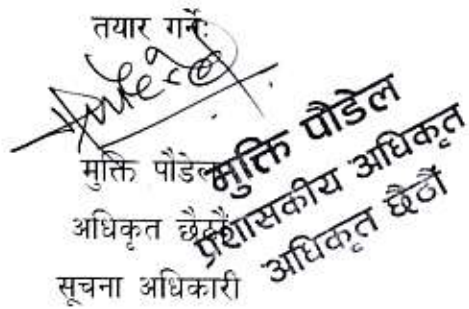 तयार गर्नेः
मुक्ति पौडेल
अधिकृत छैठौँ
सूचना अधिकारी
मुक्ति पौडेल
प्रशासकीय अधिकृत
अधिकृत छैठौँ